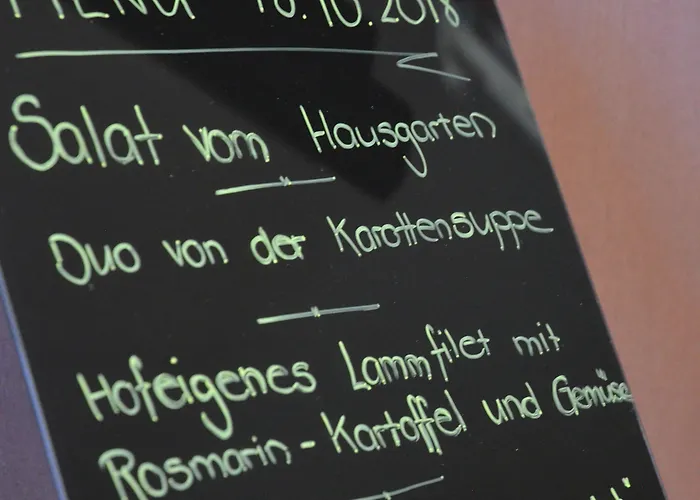 MENÜ 18.10.2018
Salat vom Hausgarten
Duo von der Karottensuppe
Hofeigenes Lammfilet mit
Rosmarin - Kartoffel und Gemüse